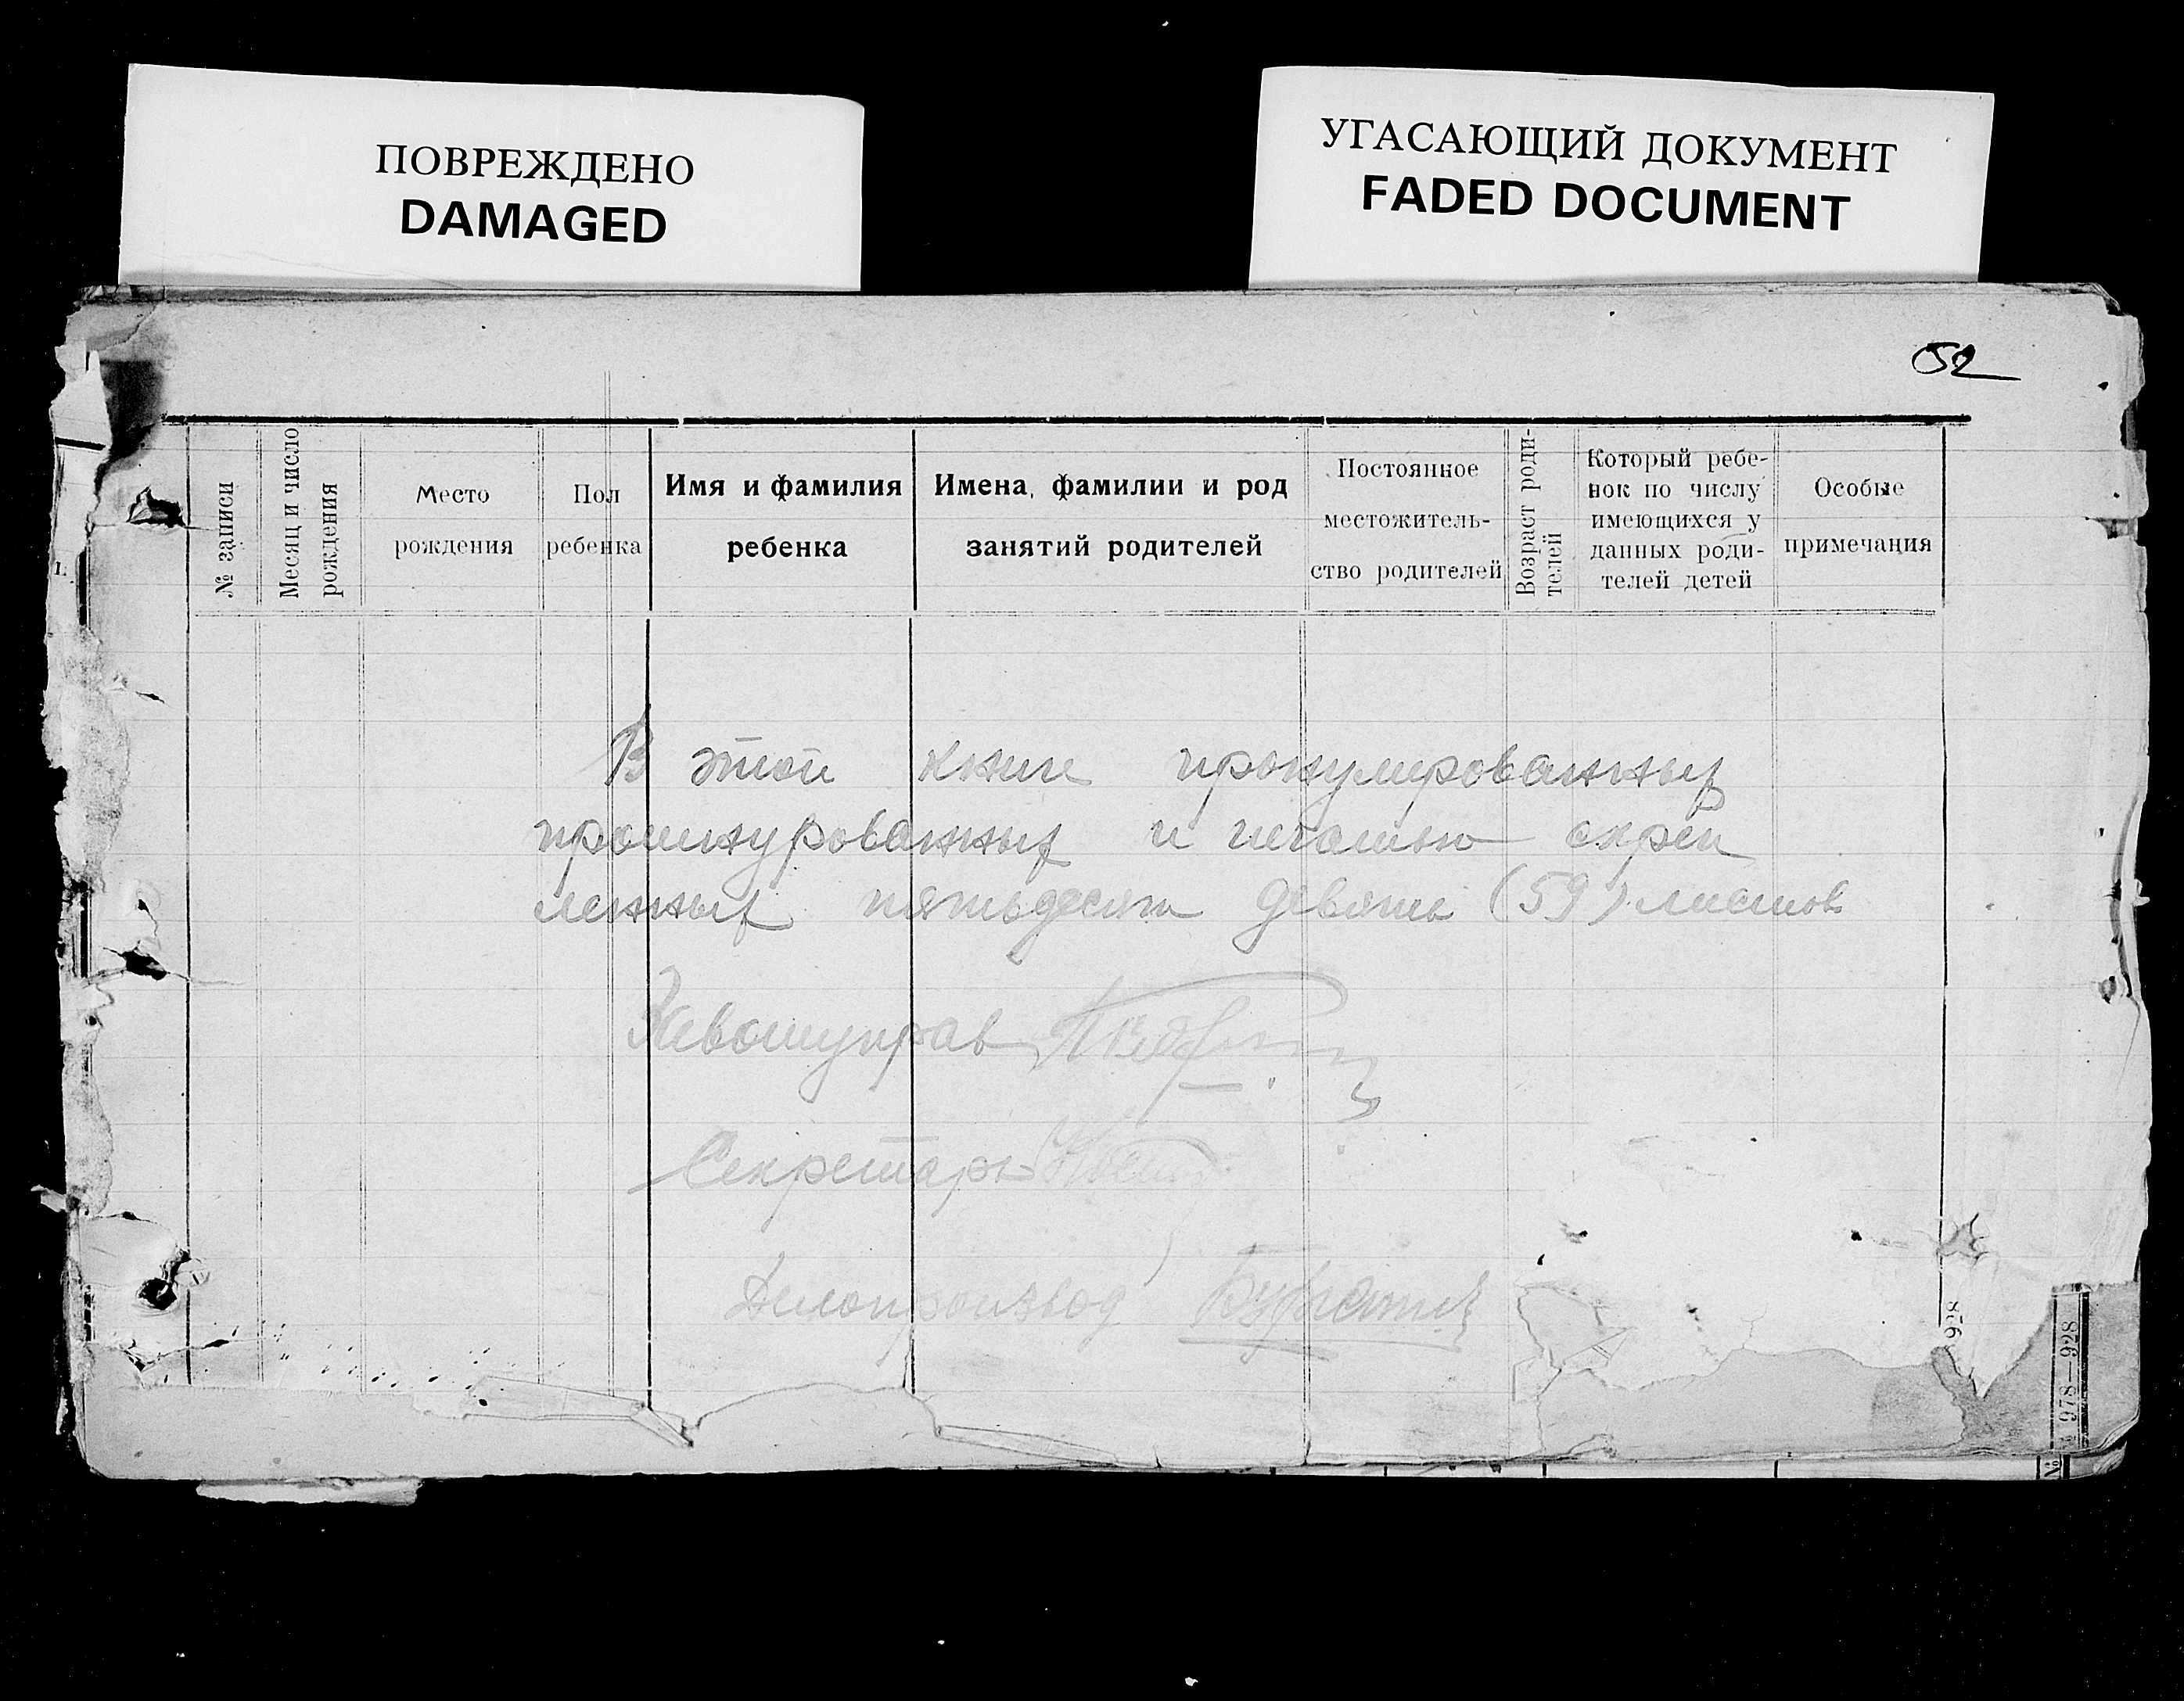 ПОВРЕЖДЕНО
DAMAGED
УГАСАЮЩИЙ ДОКУМЕНТ
FADED DOCUMENT
52
№ записи
Месяц и число
рождения
Место
рождения
Пол
ребенка
Имя и фамилия
ребенка
Имена, фамилии и род
занятий родителей
Постоянное
местожитель-
ство родителей
Возраст роди-
телей
Который ребе-
нок по числу
имеющихся у
данных роди-
телей детей
Особые
примечания
В этой книге пронумерованных
прошнурованных и печатью скреп
ленных пятьдесят девять (59) листов
Завотуправ
Секретарь
Делопроизвод
928
978—928
№